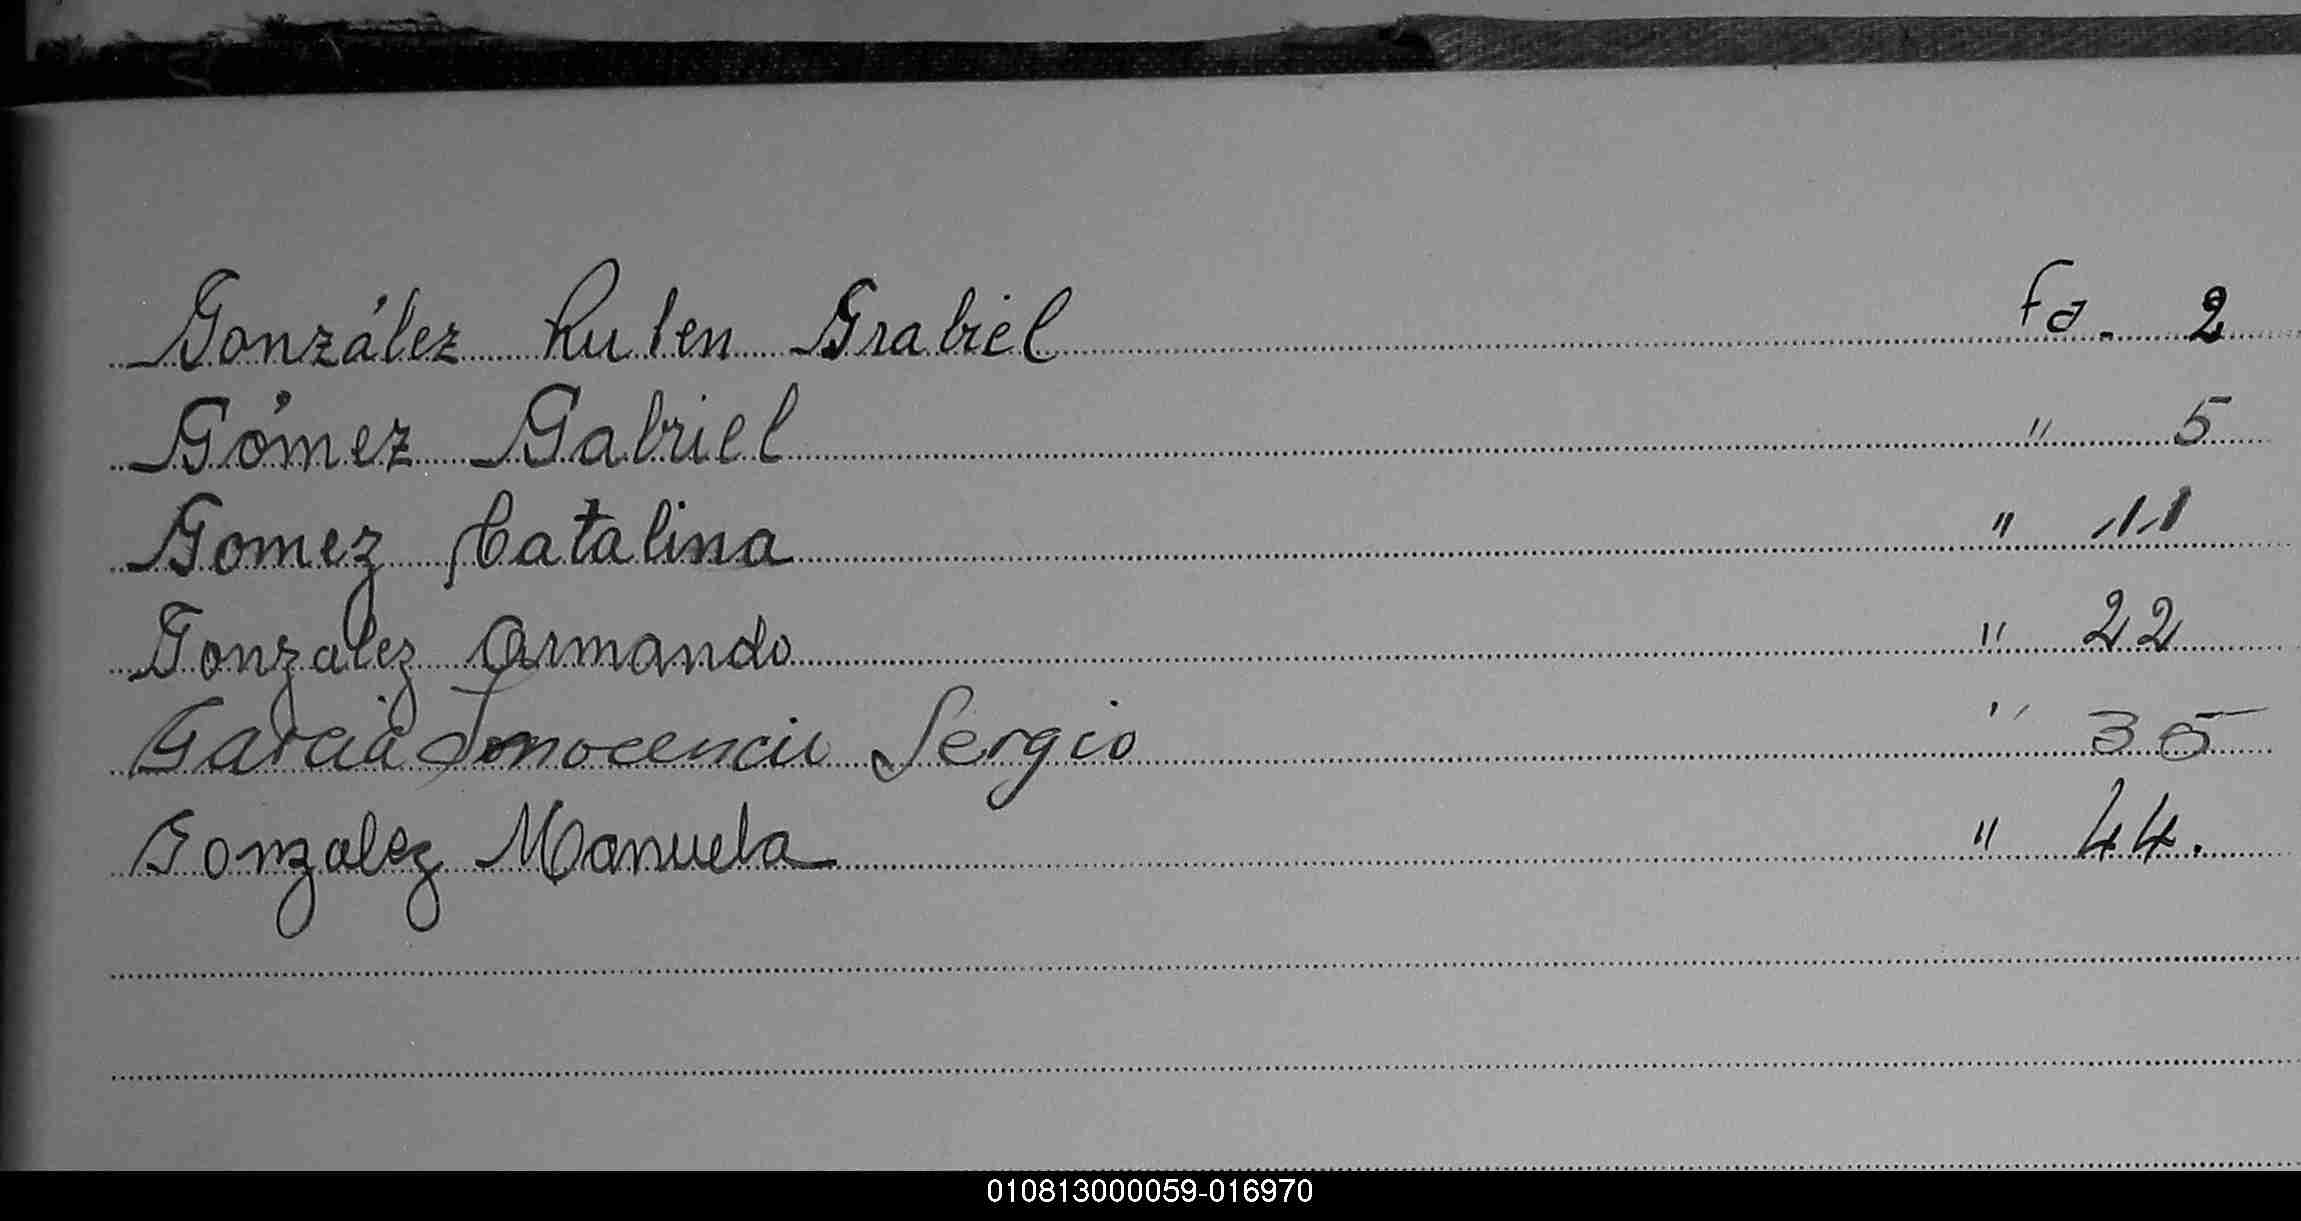 González Ruben Grabiel fo. 2
Gómez Gabriel " 5
Gomez Catalina " 11
Gonzalez Armando " 22
Garcia Inocencio Sergio " 35
Gonzalez Manuela " 44.
010813000059-016970